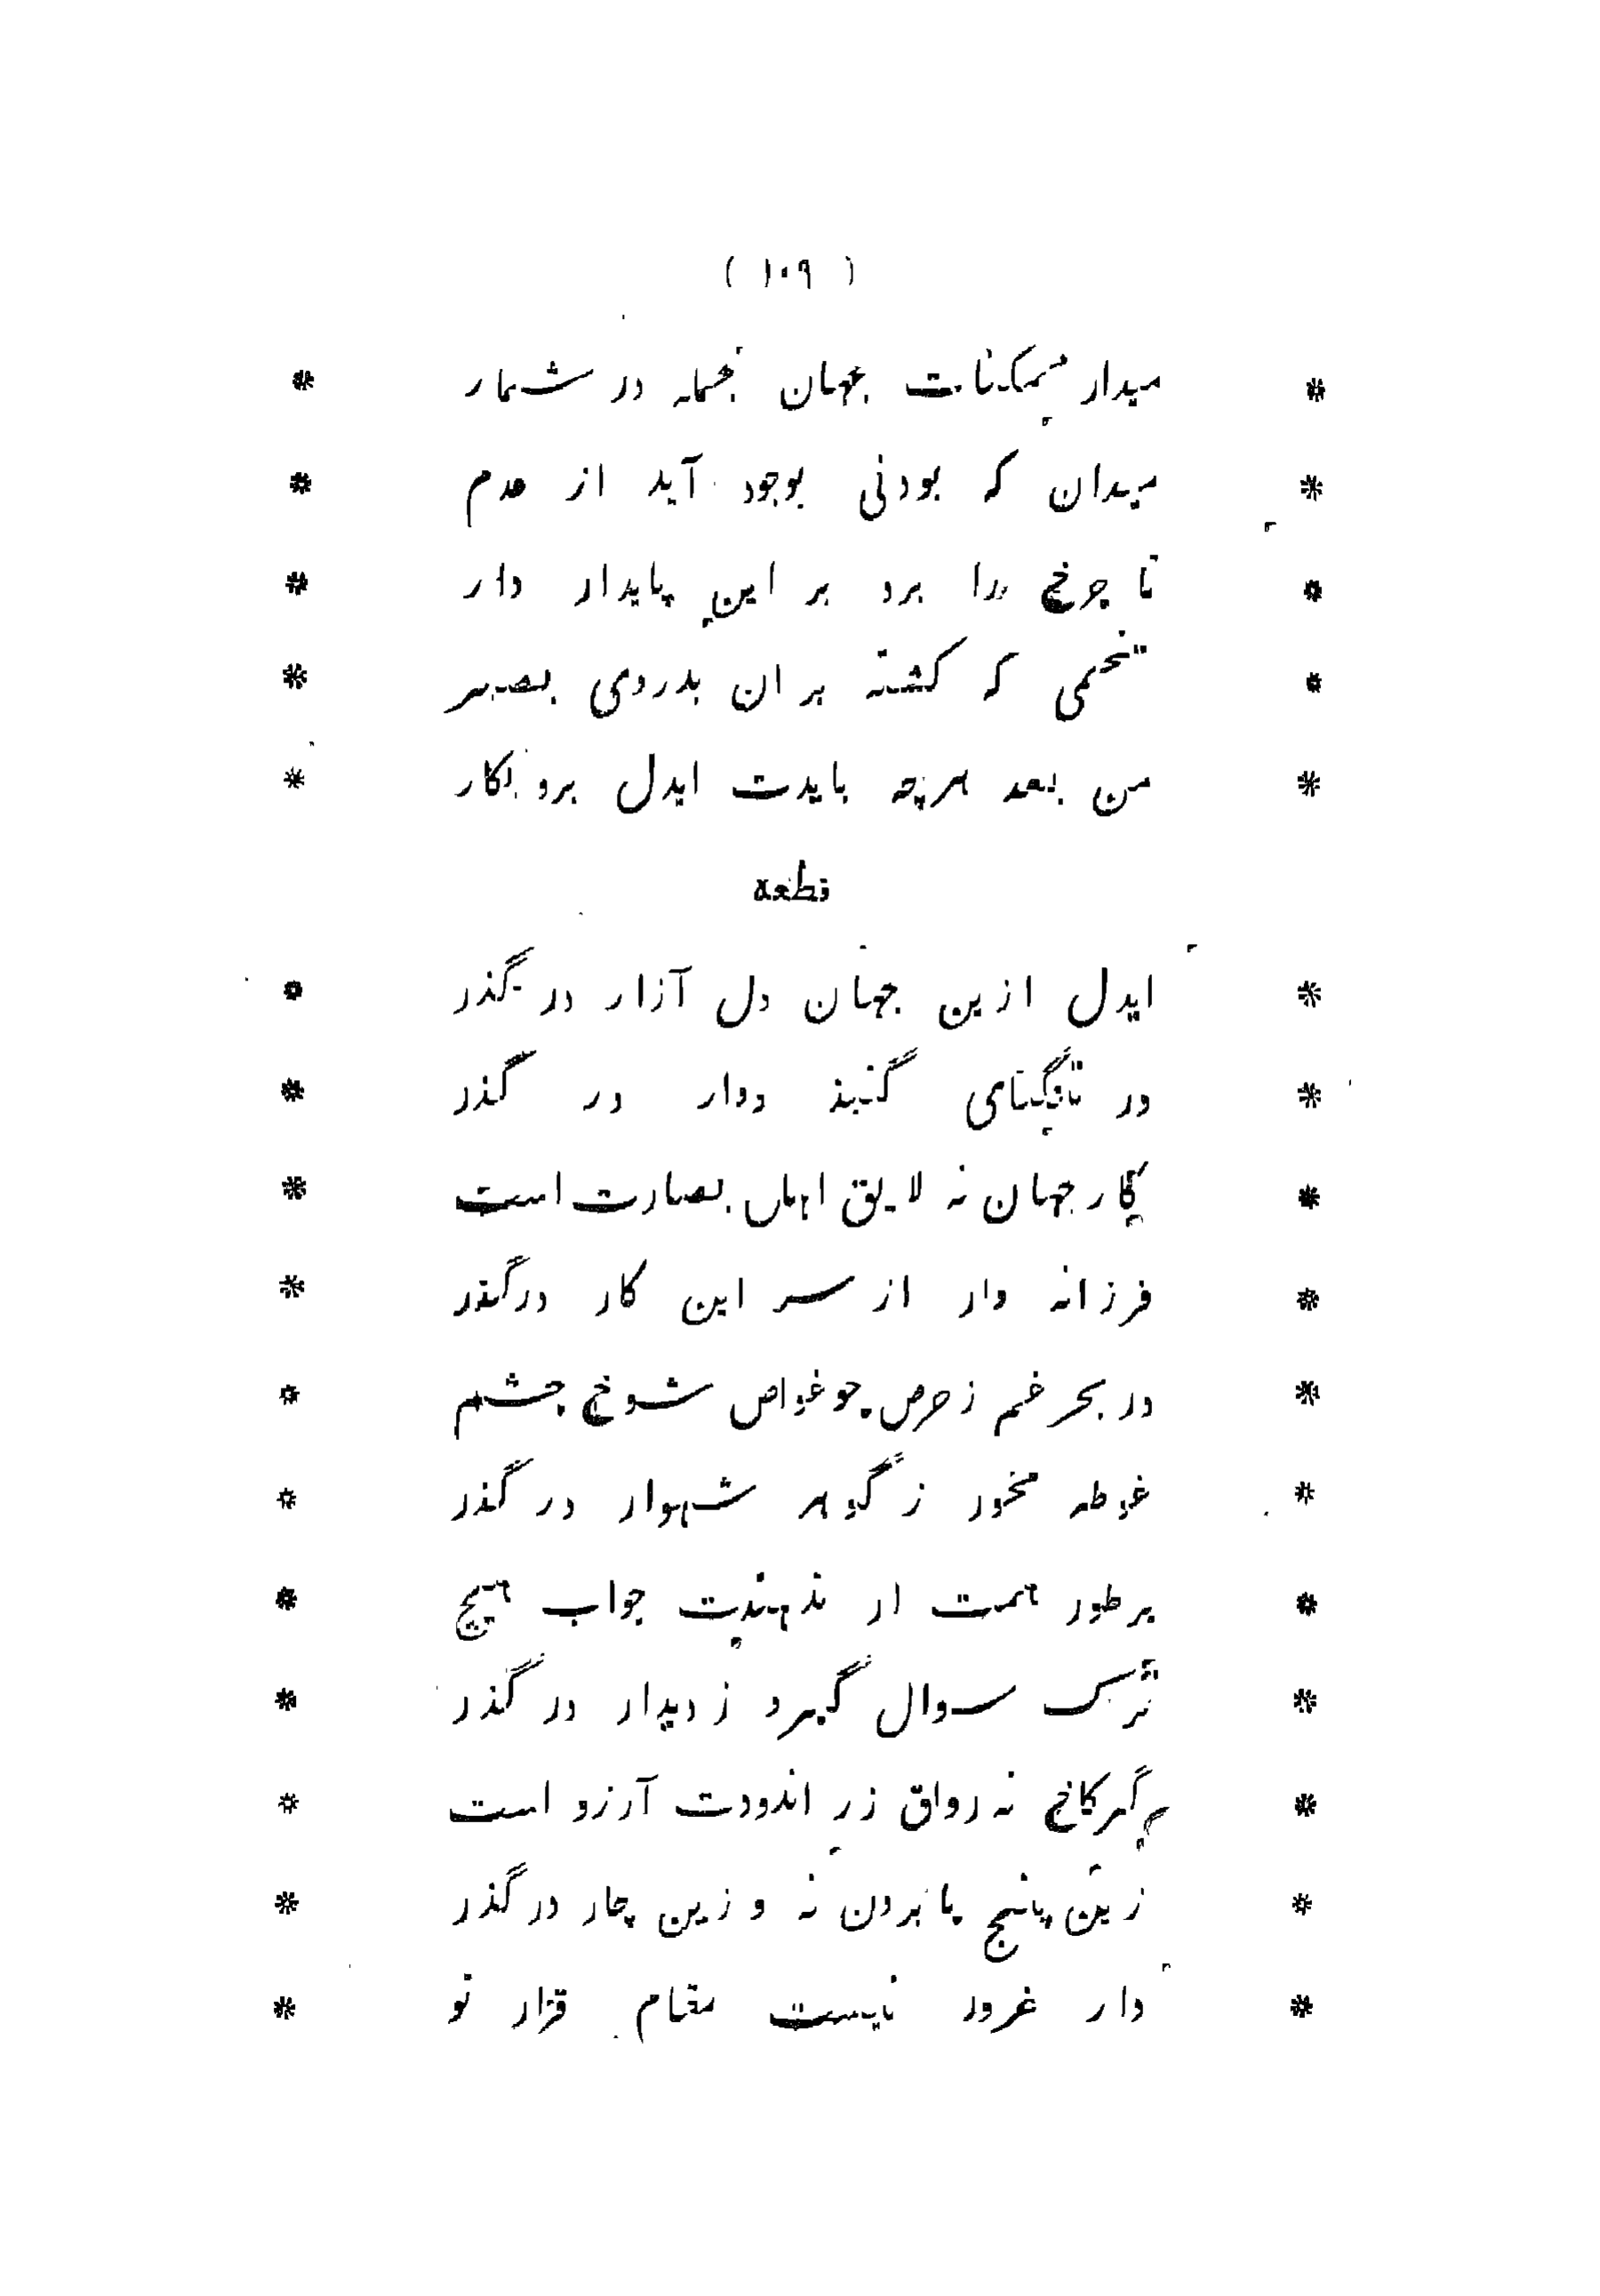 ( ۱۰۹ )
* میدار ممکنات جهان جمله در شمار *
* میدان که بودنی بوجود آید از عدم *
* تا چرخ را برد بر این پایدار دار *
* تخمی که کشته بر ان بدروی بصبر *
* من بعد هرچه بایدت ایدل برو بکار *
قطعه
* ایدل ازین جهان دل آزار در گذر *
* در تنگنای گنبذ دوار در گذر *
* کار جهان نه لایق اهل بصارت است *
* فرزانه وار از سر این کار درگذر *
* در بحر غم ز حرص چو غواص شوخ چشم *
* غوطه مخور ز گوهر شهوار در گذر *
* بر طور همت ار ندهندت جواب هیچ *
* ترک سوال گیر و ز دیدار در گذر *
* گر کاخ نه رواق زر اندودت آرزو است *
* زین پنج پا برون نه و زین چار در گذر *
* دار غرور نیست مقام قرار تو *